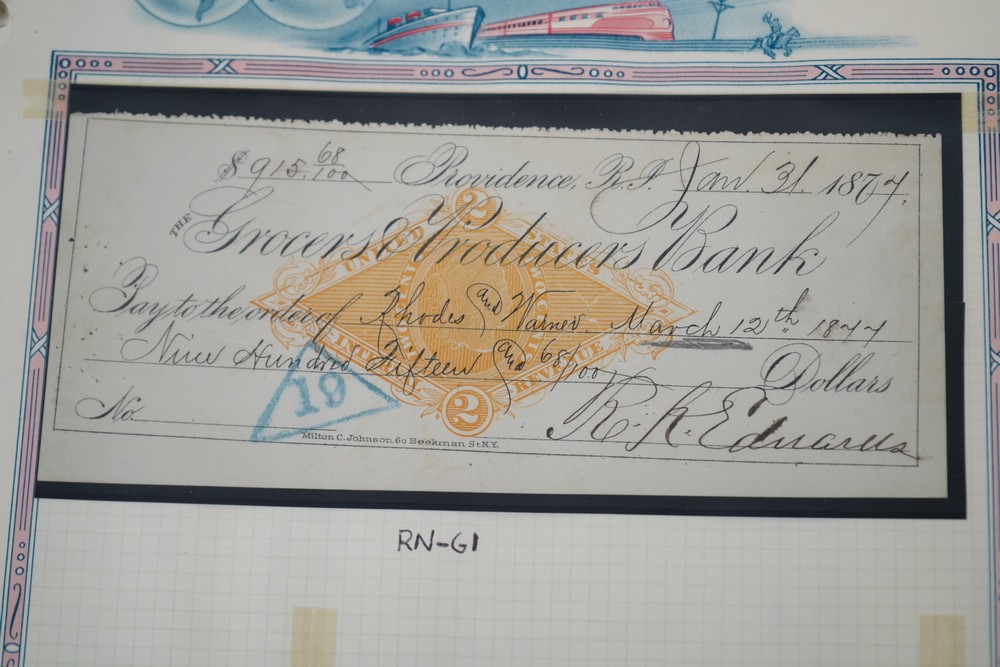 $915.68/100 Providence, R.I. Jan. 31. 1877.
THE Grocers & Producers Bank
Pay to the order of Rhodes and Warner. March 12th 1877
Nine Hundred Fifteen and 68/100 Dollars
No.
R. R. Edwards
19
Milton C. Johnson 60 Beekman St N.Y.
2
UNITED STATES
INTERNAL REVENUE
TWO CENTS
2
RN-G1